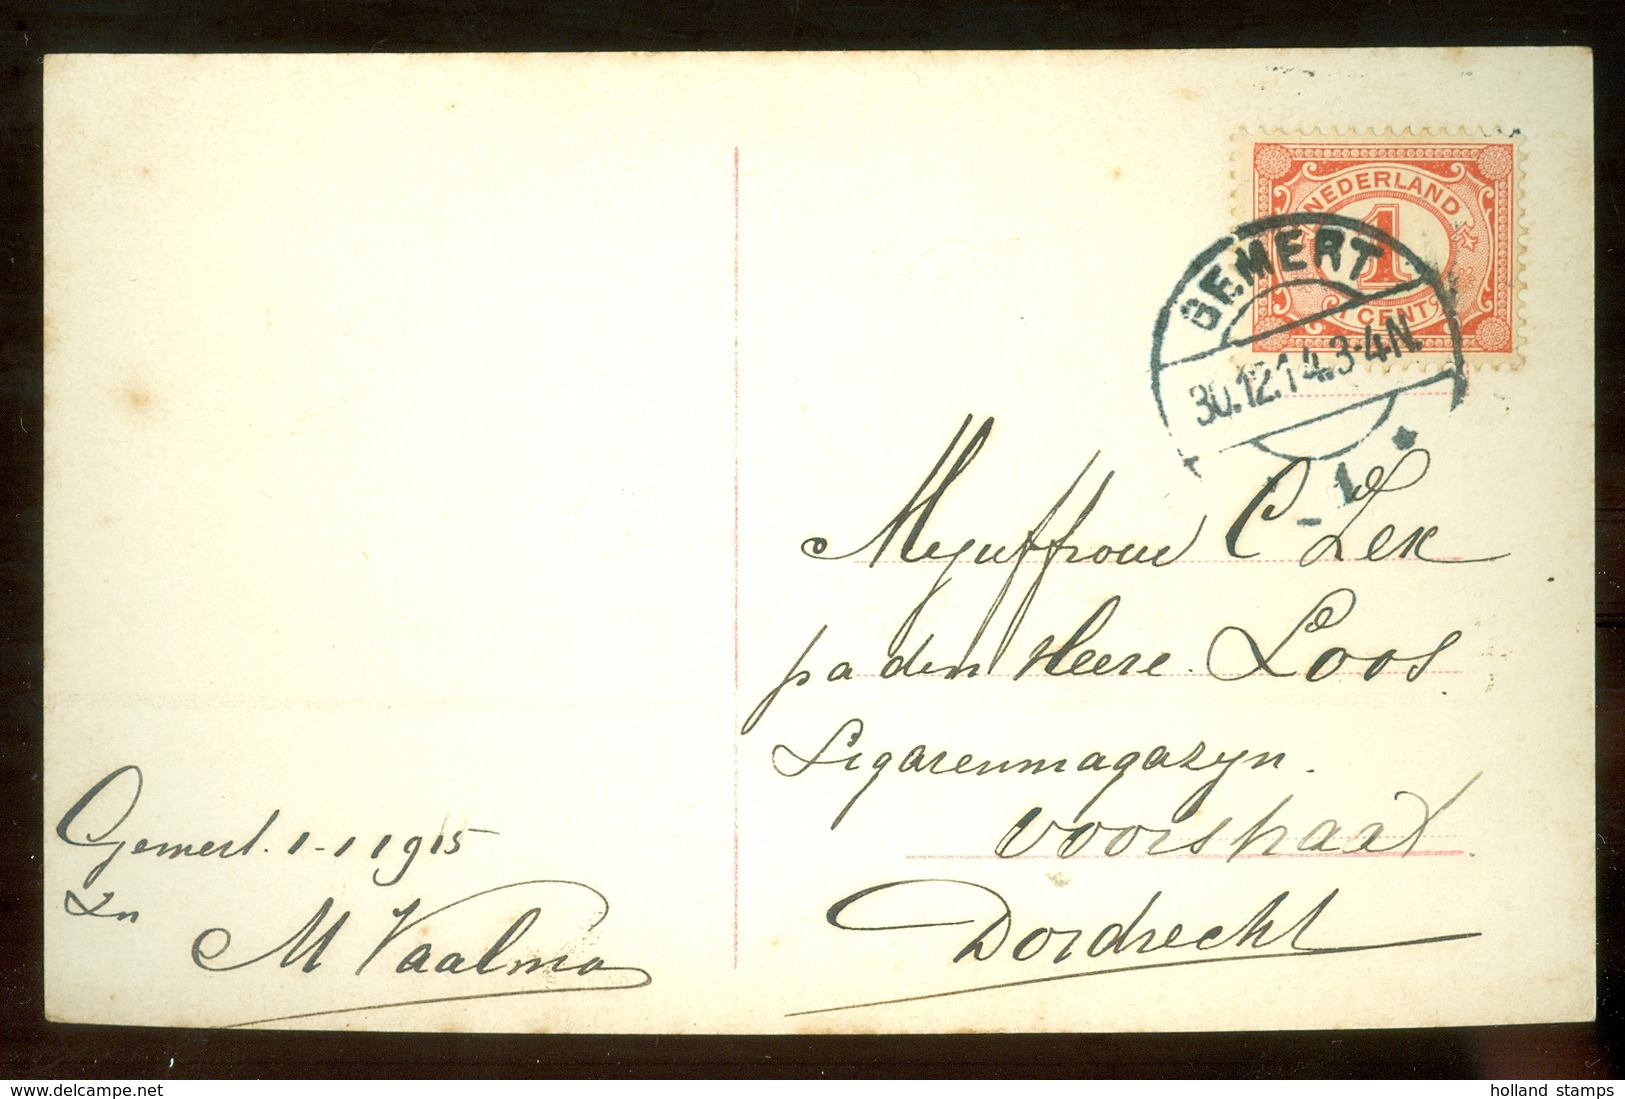 NEDERLAND
1
1 CENT
GEMERT
30.12.14.3-4N.
1
Mejuffrouw C Lek
p a den Heere Loos
Sigarenmagazyn.
Voorstraat
Dordrecht
Gemert. 1-1 1915
M Vaalma
www.delcampe.net
holland stamps